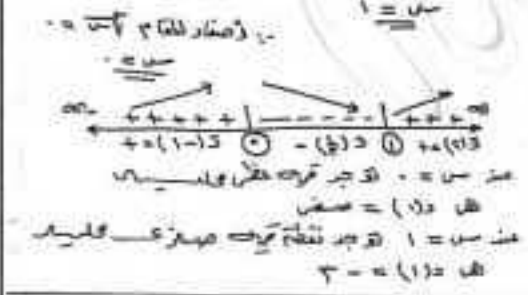 س = ١
∴ أصفار المقام √س = ٠
س = ٠
-∞ + + + + + | - - - - - | + + + ∞
د(-١) = + ٠ د(½) = - ١ د(٢) = +
عند س = ٠ توجد قيمة عظمى محلية
هى د(٠) = صفر
عند س = ١ توجد نقطة قيمة صغرى محلية
هى د(١) = -٣